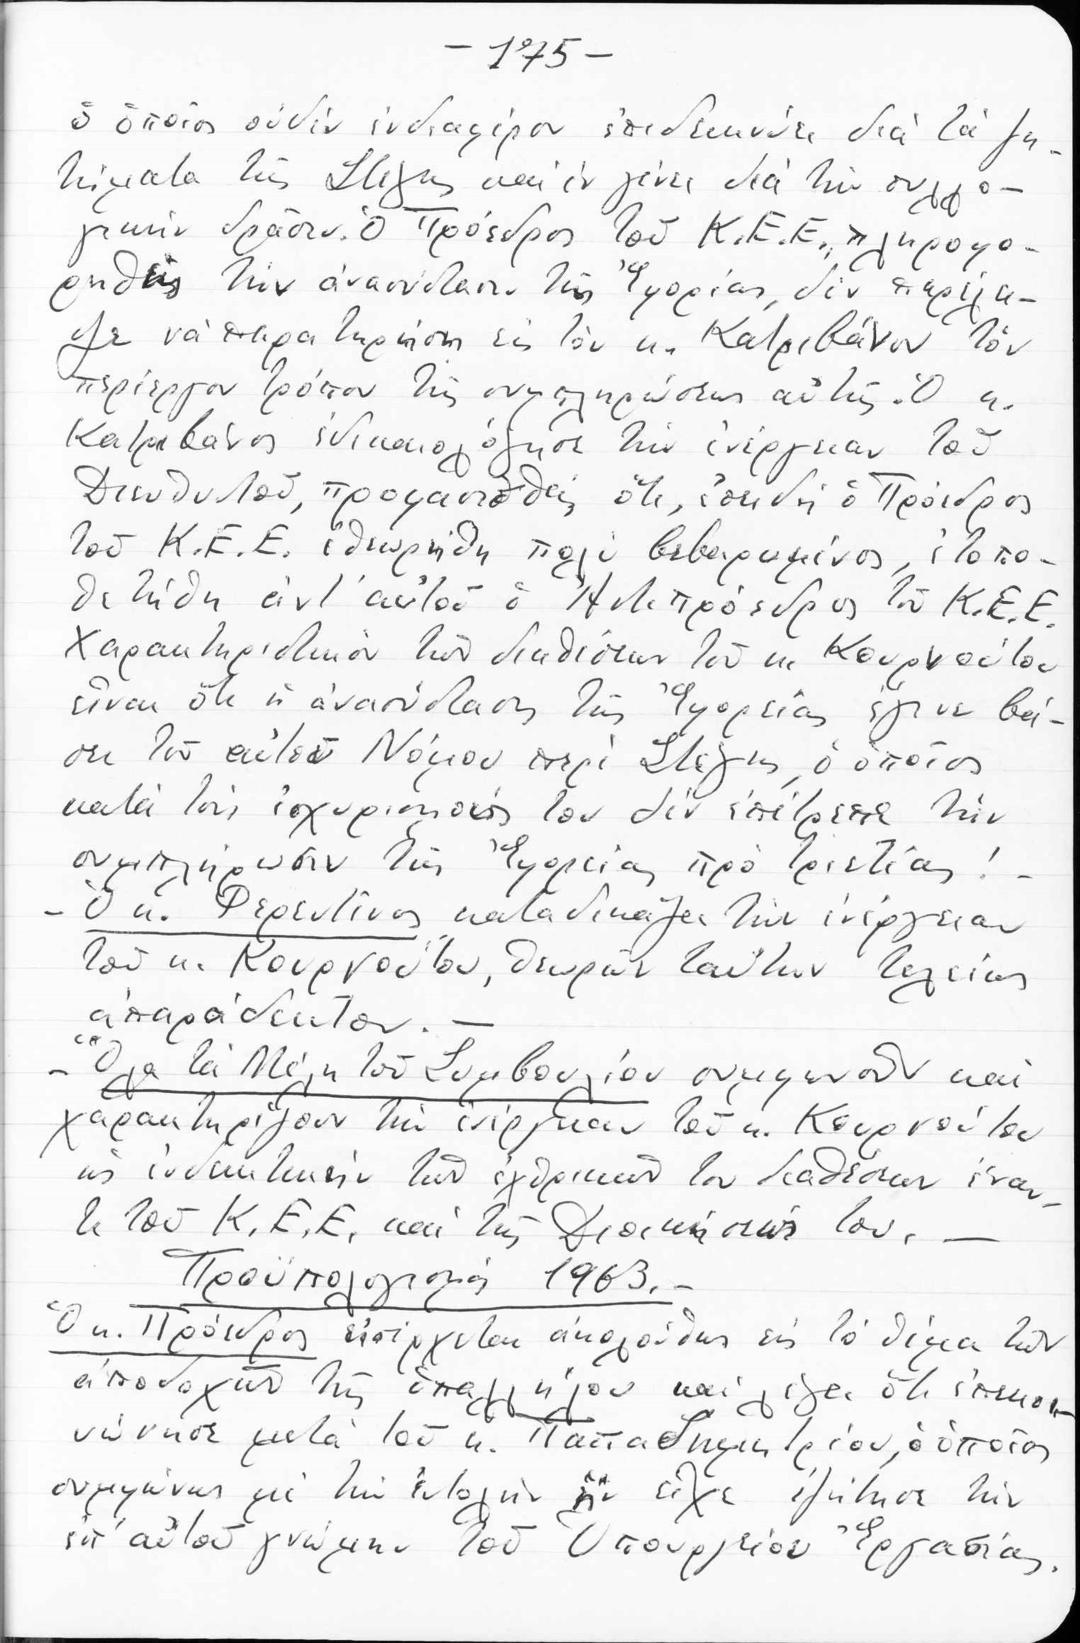 - 175 -
ὁ ὁποῖος οὐδέν ἐνδιαφέρον ἐπιδεικνύει διά τά ζη-
τήματα τῆς Στέγης καί ἐν γένει διά τήν συλλο-
γικήν δρᾶσιν. Ὁ Πρόεδρος τοῦ Κ.Ε.Ε., πληροφο-
ρηθείς τήν ἀνασύστασιν τῆς Ἐφορίας, δέν παρέλει-
ψε νά παρατηρήσῃ εἰς τόν κ. Κατριβάνον τόν
περίεργον τρόπον τῆς συμπληρώσεως αὐτῆς. Ὁ κ.
Κατριβάνος ἐδικαιολόγησε τήν ἐνέργειαν τοῦ
Διευθυντοῦ, προφασισθείς ὅτι, ἐπειδή ὁ Πρόεδρος
τοῦ Κ.Ε.Ε. ἐθεωρήθη πολύ βεβαρημένος, ἐτοπο-
θετήθη ἀντ' αὐτοῦ ὁ Ἀντιπρόεδρος τοῦ Κ.Ε.Ε.
Χαρακτηριστικόν τῶν διαθέσεων τοῦ κ. Κουρνούτου
εἶναι ὅτι ἡ ἀνασύστασις τῆς Ἐφορείας ἔγινε βά-
σει τοῦ αὐτοῦ Νόμου περί Στέγης, ὁ ὁποῖος
κατά τούς ἰσχυρισμούς του δέν ἐπέτρεπε τήν
συμπλήρωσιν τῆς Ἐφορείας πρό τριετίας! -
- Ὁ κ. Φερεντῖνος καταδικάζει τήν ἐνέργειαν
τοῦ κ. Κουρνούτου, θεωρῶν ταύτην τελείως
ἀπαράδεκτον. -
- Ὅλα τά Μέλη τοῦ Συμβουλίου συμφωνοῦν καί
χαρακτηρίζουν τήν ἐνέργειαν τοῦ κ. Κουρνούτου
ὡς ἐνδεικτικήν τῶν ἐχθρικῶν του διαθέσεων ἔναν-
τι τοῦ Κ.Ε.Ε. καί τῆς Διοικήσεώς του. -
Προϋπολογισμός 1963. -
Ὁ κ. Πρόεδρος εἰσέρχεται ἀκολούθως εἰς τό θέμα τῶν
ἀποδοχῶν τῆς ὑπαλλήλου καί λέγει ὅτι ἐπικοι-
νώνησε μετά τοῦ κ. Παπαδημητρίου, ὁ ὁποῖος
συμφώνως μέ τήν ἐντολήν ἥν εἶχε ἐζήτησε τήν
ἐπ' αὐτοῦ γνώμην τοῦ Ὑπουργείου Ἐργασίας.